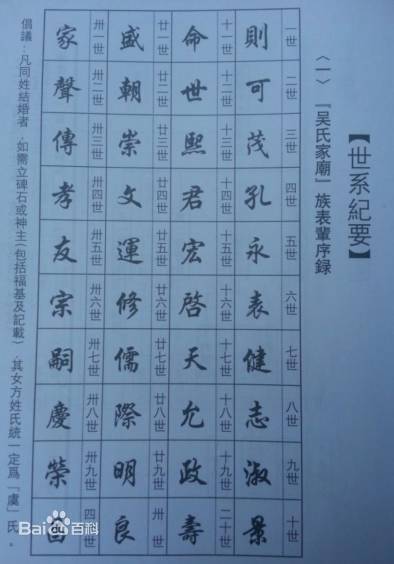 【世系紀要】
〈一〉『吴氏家廟』族表輩序録
一世 二世 三世 四世 五世 六世 七世 八世 九世 十世
則 可 茂 孔 永 表 健 志 淑 景
十一世 十二世 十三世 十四世 十五世 十六世 十七世 十八世 十九世 二十世
命 世 熙 君 宏 啓 天 允 政 壽
廿一世 廿二世 廿三世 廿四世 廿五世 廿六世 廿七世 廿八世 廿九世 卅世
盛 朝 崇 文 運 修 儒 際 明 良
卅一世 卅二世 卅三世 卅四世 卅五世 卅六世 卅七世 卅八世 卅九世 四世
家 聲 傳 孝 友 宗 嗣 慶 榮
倡議：凡同姓結婚者，如需立碑石或神主（包括福基及記載），其女方姓氏統一定爲「虞」氏。
Bai百科